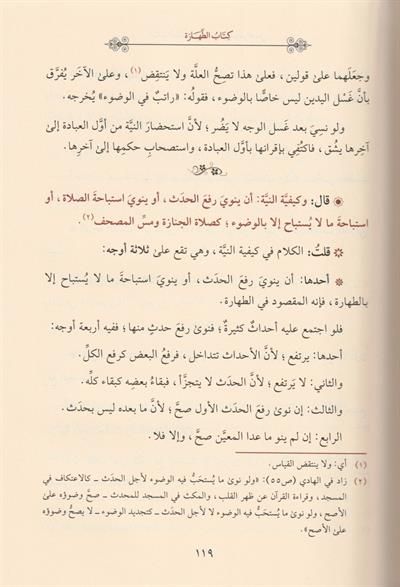 كِتَابُ الطَّهَارَة
وجعَلَهما علىٰ قولين، فعلىٰ هذا تصِحُّ العلَّة ولا يَنتقِض(١)، وعلىٰ الآخَر يُفرَّق
بأنَّ غَسْل اليدين ليس خاصًّا بالوضوء، فقولُه: «راتبٌ في الوضوء» يُخرجه.
ولو نسِيَ بعد غَسل الوجه لا يَضُر؛ لأنَّ استحضارَ النيَّة من أوَّل العبادة إلىٰ
آخِرها يشُق، فاكتُفِي بإقرانها بأوَّل العبادة، واستصحابِ حكمِها إلىٰ آخِرها.
قال: وكيفيَّة النيَّة: أن ينويَ رفعَ الحدَث، أو ينويَ استباحةَ الصلاة، أو
استباحةَ ما لا يُستباح إلا بالوضوء؛ كصلاة الجنازة ومسِّ المصحف(٢).
قلتُ: الكلام في كيفية النيَّة، وهي تقع علىٰ ثلاثة أوجه:
أحدها: أن ينويَ رفعَ الحدَث، أو ينويَ استباحةَ ما لا يُستباح إلا
بالطهارة، فإنه المقصود في الطهارة.
فلو اجتمع عليه أحداثٌ كثيرةٌ؛ فنوىٰ رفعَ حدثٍ منها؛ ففيه أربعة أوجه:
أحدها: يرتفع؛ لأنَّ الأحداث تتداخل، فرفعُ البعض كرفع الكلِّ.
والثاني: لا يَرتفع؛ لأنَّ الحدَث لا يتجزَّأ، فبقاءُ بعضِه كبقاء كلِّه.
والثالث: إن نوىٰ رفعَ الحدَث الأول صحَّ؛ لأنَّ ما بعده ليس بحدَث.
الرابع: إن لم ينوِ ما عدا المعيَّن صحَّ، وإلا فلا.
(١) أي: ولا ينتقض القياس.
(٢) زاد في الهادي (ص٥٥): «ولو نوىٰ ما يُستحَبُّ فيه الوضوء لأجل الحدَث ــ كالاعتكاف في
المسجد، وقراءة القرآن عن ظهر القلب، والمكث في المسجد للمحدث ــ صحَّ وضوؤه علىٰ
الأصح، ولو نوىٰ ما يُستحَبُّ فيه الوضوء لا لأجل الحدَث ــ كتجديد الوضوء ــ لا يصحُّ وضوؤه
علىٰ الأصح».
١١٩